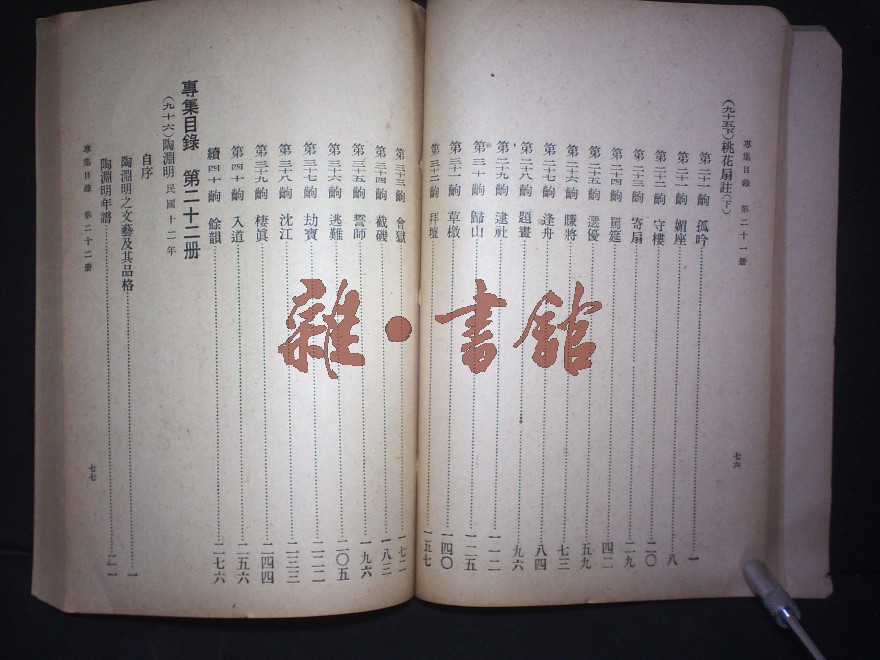 專集目錄 第二十一册
七六
(九十五下)桃花扇註(下)
第二十一齣 孤吟……一
第二十一齣 媚座……八
第二十二齣 守樓……二〇
第二十三齣 寄扇……二九
第二十四齣 罵筵……四二
第二十五齣 選優……五九
第二十六齣 賺將……七三
第二十七齣 逢舟……八四
第二十八齣 題畫……九六
第二十九齣 逮社……一一二
第三十齣 歸山……一二五
第三十一齣 草檄……一四〇
第三十二齣 拜壇……一五七
第三十三齣 會獄……一七二
第三十四齣 截磯……一八三
第三十五齣 誓師……一九六
第三十六齣 逃難……二〇五
第三十七齣 劫寶……二二二
第三十八齣 沈江……二三三
第三十九齣 棲眞……二四四
第四十齣 入道……二五六
續四十齣 餘韻……二七六
專集目錄 第二十二册
(九十六)陶淵明 民國十二年
自序
陶淵明之文藝及其品格……一
陶淵明年譜……二一
專集目錄 第二十二册
七七
雜·書館